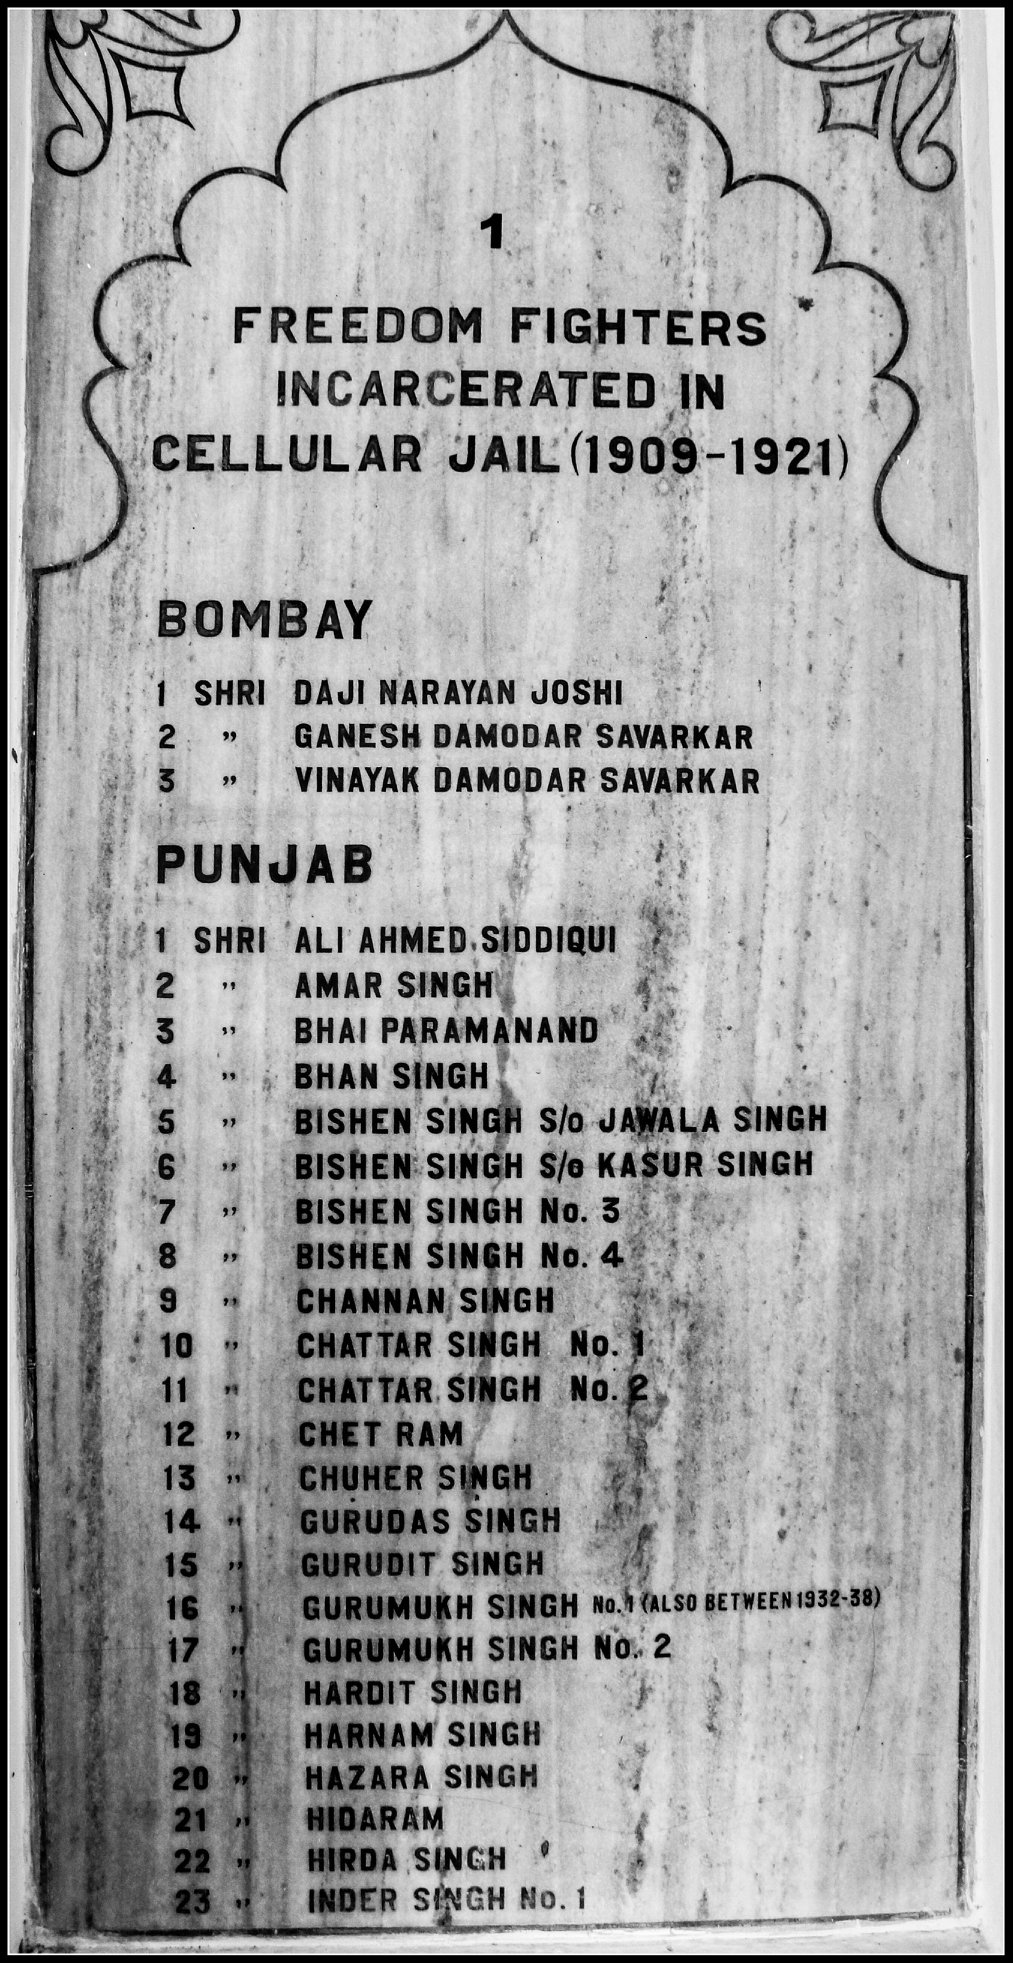 1
FREEDOM FIGHTERS
INCARCERATED IN
CELLULAR JAIL (1909-1921)
BOMBAY
1 SHRI DAJI NARAYAN JOSHI
2 " GANESH DAMODAR SAVARKAR
3 " VINAYAK DAMODAR SAVARKAR
PUNJAB
1 SHRI ALI AHMED SIDDIQUI
2 " AMAR SINGH
3 " BHAI PARAMANAND
4 " BHAN SINGH
5 " BISHEN SINGH S/o JAWALA SINGH
6 " BISHEN SINGH S/o KASUR SINGH
7 " BISHEN SINGH No. 3
8 " BISHEN SINGH No. 4
9 " CHANNAN SINGH
10 " CHATTAR SINGH No. 1
11 " CHATTAR SINGH No. 2
12 " CHET RAM
13 " CHUHER SINGH
14 " GURUDAS SINGH
15 " GURUDIT SINGH
16 " GURUMUKH SINGH No. 1 (ALSO BETWEEN 1932-38)
17 " GURUMUKH SINGH No. 2
18 " HARDIT SINGH
19 " HARNAM SINGH
20 " HAZARA SINGH
21 " HIDARAM
22 " HIRDA SINGH
23 " INDER SINGH No. 1